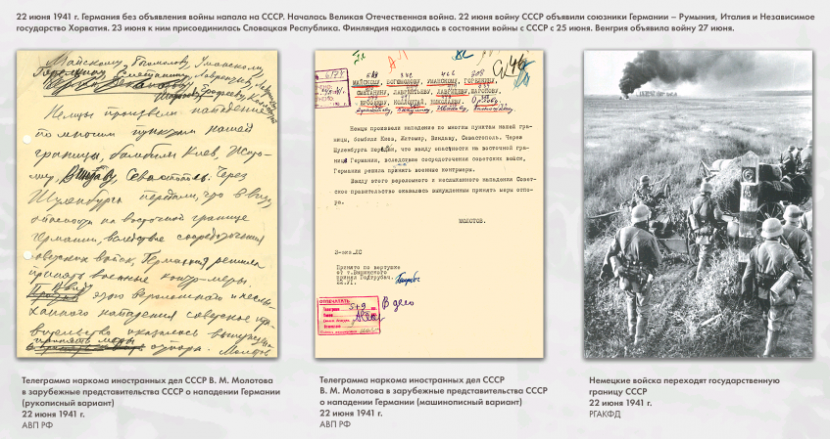 22 июня 1941 г. Германия без объявления войны напала на СССР. Началась Великая Отечественная война. 22 июня войну СССР объявили союзники Германии – Румыния, Италия и Независимое
государство Хорватия. 23 июня к ним присоединилась Словацкая Республика. Финляндия находилась в состоянии войны с СССР с 25 июня. Венгрия объявила войну 27 июня.
Майскому,
Немцы произвели нападение
по многим пунктам нашей
границы, бомбили Киев,
Севастополь. Через
Шуленбурга передали, что в виду
опасности на восточной границе
Германии, вследствие сосредоточения
советских войск, Германия решила
принять военные контр-меры.
этого вероломного и неслы-
ханного нападения советское пра-
вительство оказалось вынужден
принять меры
отпора. Молотов
Немцы произвели нападение по многим пунктам нашей гра-
ницы, бомбили Киев, Житомир, Виндаву, Севастополь. Через
Шуленбурга передали, что ввиду опасности на восточной грани-
це Германии, вследствие сосредоточения советских войск,
Германия решила принять военные контрмеры.
Ввиду этого вероломного и неслыханного нападения Совет-
ское правительство оказалось вынужденным принять меры отпо-
ра.
МОЛОТОВ.
В дело
Телеграмма наркома иностранных дел СССР В. М. Молотова
в зарубежные представительства СССР о нападении Германии
(рукописный вариант)
22 июня 1941 г.
АВП РФ
Телеграмма наркома иностранных дел СССР
В. М. Молотова в зарубежные представительства СССР
о нападении Германии (машинописный вариант)
22 июня 1941 г.
АВП РФ
Немецкие войска переходят государственную
границу СССР
22 июня 1941 г.
РГАКФД